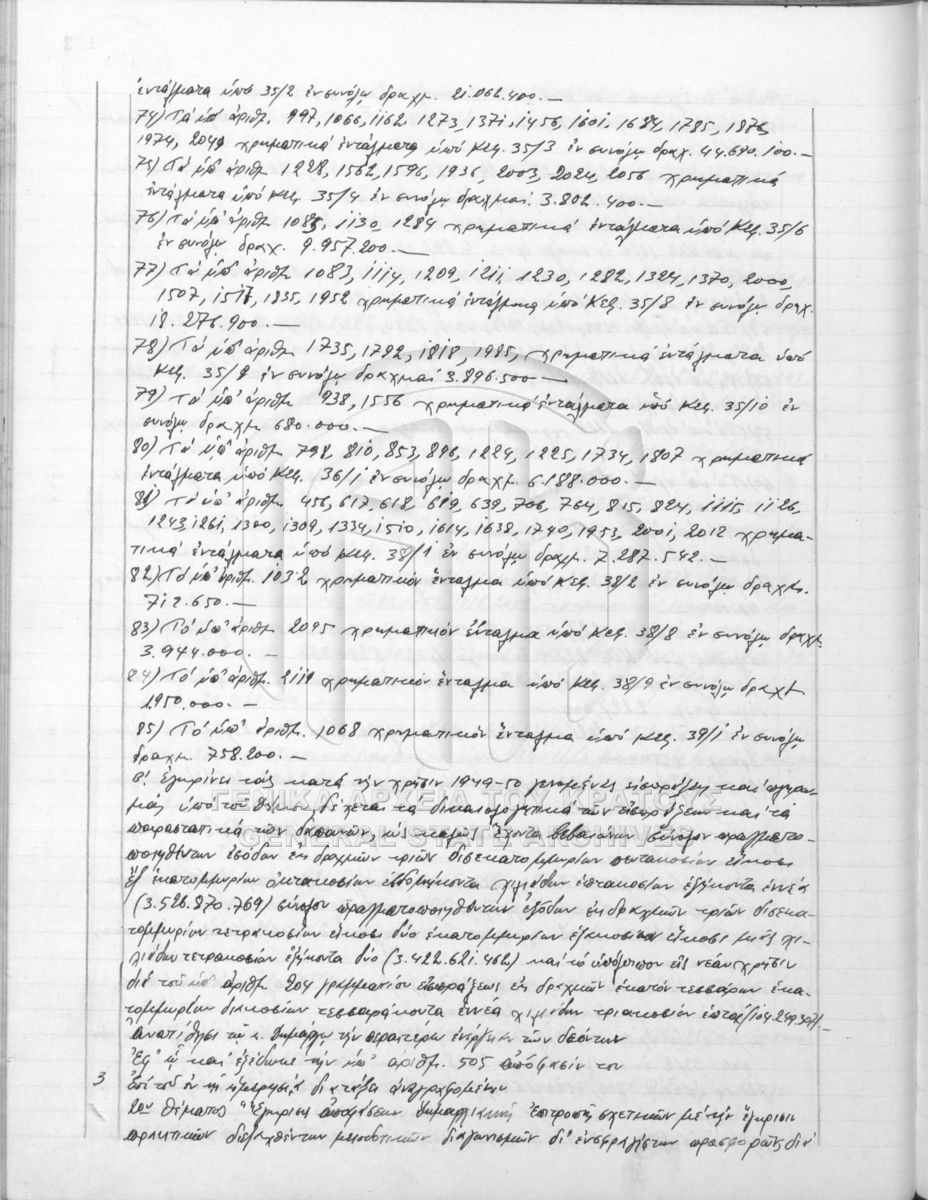 ἐντάλματα ὑπό 35/2 ἐν συνόλῳ δραχ. 21.062.400.—
74) Τά ὑπ' ἀριθ. 997, 1066, 1162, 1273, 1371, 1456, 1601, 1684, 1785, 1876,
1974, 2049 χρηματικά ἐντάλματα ὑπό Κεφ. 35/3 ἐν συνόλῳ δραχ. 44.690.100.—
75) Τά ὑπ' ἀριθ. 1228, 1562, 1596, 1936, 2003, 2024, 2056 χρηματικά
ἐντάλματα ὑπό Κεφ. 35/4 ἐν συνόλῳ δραχμαί 3.802.400.—
76) Τά ὑπ' ἀριθ. 1085, 1130, 1284 χρηματικά ἐντάλματα ὑπό Κεφ. 35/6
ἐν συνόλῳ δραχ. 9.957.200.—
77) Τά ὑπ' ἀριθ. 1083, 1114, 1209, 1211, 1230, 1282, 1324, 1370, 2000,
1507, 1517, 1835, 1952 χρηματικά ἐντάλματα ὑπό Κεφ. 35/8 ἐν συνόλῳ δραχ.
18.276.900.—
78) Τά ὑπ' ἀριθ. 1735, 1792, 1818, 1985, χρηματικά ἐντάλματα ὑπό
Κεφ. 35/9 ἐν συνόλῳ δραχμαί 3.896.500.—
79) Τά ὑπ' ἀριθ. 938, 1556 χρηματικά ἐντάλματα ὑπό Κεφ. 35/10 ἐν
συνόλῳ δραχμ. 680.000.—
80) Τά ὑπ' ἀριθ. 798, 810, 853, 896, 1224, 1225, 1734, 1807 χρηματικά
ἐντάλματα ὑπό Κεφ. 36/1 ἐν συνόλῳ δραχμ. 6.188.000.—
81) Τά ὑπ' ἀριθ. 456, 617, 618, 619, 639, 706, 764, 815, 824, 1115, 1126,
1243, 1261, 1300, 1309, 1334, 1510, 1614, 1638, 1740, 1953, 2001, 2012 χρημα-
τικά ἐντάλματα ὑπό Κεφ. 38/1 ἐν συνόλῳ δραχμ. 7.287.542.—
82) Τό ὑπ' ἀριθ. 1032 χρηματικόν ἔνταλμα ὑπό Κεφ. 38/2 ἐν συνόλῳ δραχμ.
712.650.—
83) Τό ὑπ' ἀριθ. 2095 χρηματικόν ἔνταλμα ὑπό Κεφ. 38/8 ἐν συνόλῳ δραχμ.
3.944.000.—
84) Τό ὑπ' ἀριθ. χρηματικόν ἔνταλμα ὑπό Κεφ. 38/9 ἐν συνόλῳ δραχμ.
1950.000.—
85) Τό ὑπ' ἀριθ. 1068 χρηματικόν ἔνταλμα ὑπό Κεφ. 39/1 ἐν συνόλῳ
δραχμ. 758.200.—
Β! Ἐγκρίνει τάς κατά τήν χρῆσιν 1949-50 γενομένας εἰσπράξεις καί πληρω-
μάς ὑπό τοῦ Δήμου, δέχεται τά δικαιολογητικά τῶν εἰσπράξεων καί τά
παραστατικά τῶν δαπανῶν, ὡς καλῶς ἔχοντα βεβαιωῖ σύνολον πραγματο-
ποιηθέντων ἐσόδων ἐκ δραχμῶν τριῶν δισεκατομμυρίων πεντακοσίων εἴκοσι
ἕξ ἑκατομμυρίων ὀκτακοσίων ἑβδομήκοντα χιλιάδων ἑπτακοσίων ἑξήκοντα ἐννέα
(3.526.870.769) σύνολον πραγματοποιηθέντων ἐξόδων ἐκ δραχμῶν τριῶν δισεκα-
τομμυρίων τετρακοσίων εἴκοσι δύο ἑκατομμυρίων ἑξακοσίων εἴκοσι μιᾶς χι-
λιάδων τετρακοσίων ἑξήκοντα δύο (3.422.621.462) καί τό ὑπόλοιπον εἰς νέαν χρῆσιν
διά τοῦ ὑπ' ἀριθ. 204 γραμματίου εἰσπράξεως ἐκ δραχμῶν ἑκατόν τεσσάρων ἑκα-
τομμυρίων διακοσίων τεσσαράκοντα ἐννέα χιλιάδων τριακοσίων ἑπτά (104.249.307).—
Ἀναθέτει τῷ κ. Δημάρχῳ τήν περαιτέρω ἐνέργειαν τῶν δεόντων
Ἐφ' ᾧ καί ἐξέδωκε τήν ὑπ' ἀριθμ. 505 ἀπόφασίν του
3 Ἐπί τοῦ ἐν τῇ ἡμερησίᾳ διατάξει ἀναγραφομένου
2ου θέματος "Ἔγκρισις ἀποφάσεων Δημαρχιακῆς Ἐπιτροπῆς σχετικῶν μέ τήν ἔγκρισιν
πρακτικῶν διεξαχθέντων μειοδοτικῶν διαγωνισμῶν δι' ἐνσφραγίστων προσφορῶν διά
ΓΕΝΙΚΑ ΑΡΧΕΙΑ ΤΟΥ ΚΡΑΤΟΥΣ
GENERAL STATE ARCHIVES